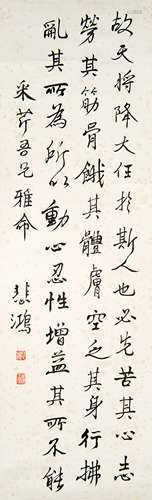 故天將降大任於斯人也必先苦其心志
勞其筋骨餓其體膚空乏其身行拂
亂其所為所以動心忍性增益其所不能
采芹吾兄雅命
悲鴻